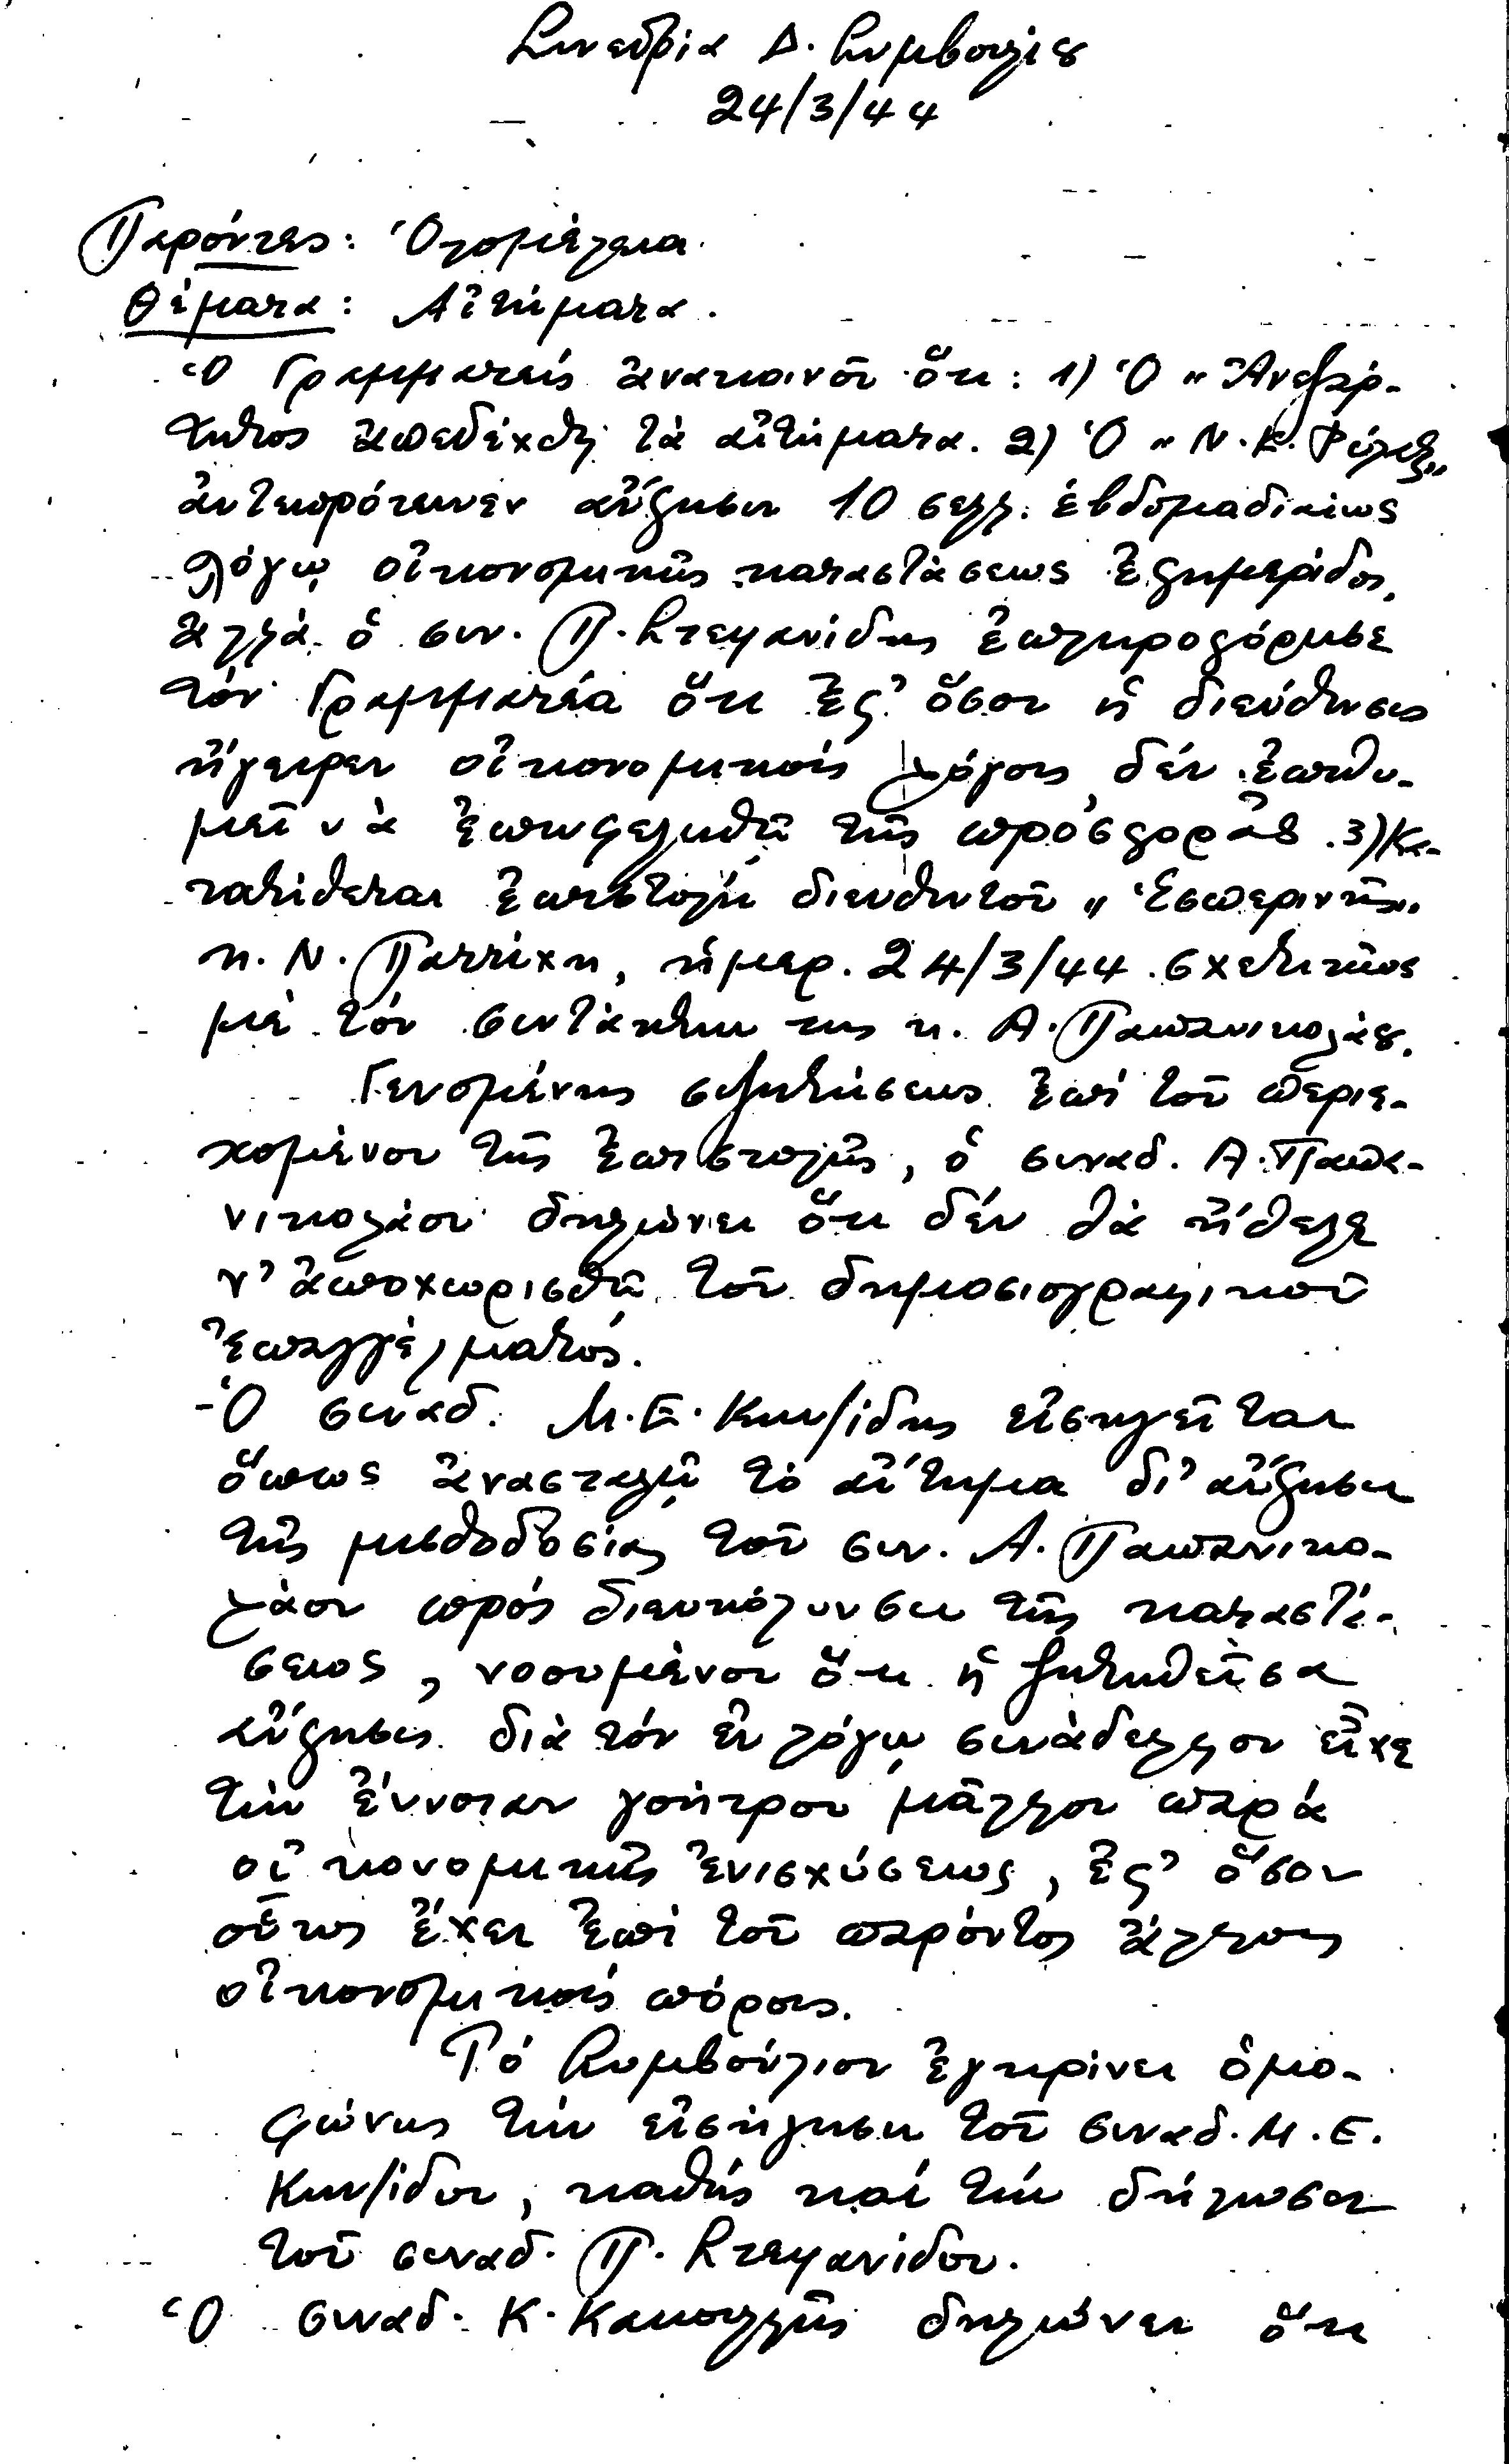 Συνεδρία Δ. Συμβουλίου
24/3/44
Παρόντες: Ὁλομέλεια
Θέματα: Αἰτήματα.
Ὁ Γραμματεύς ἀνακοινοῖ ὅτι: 1) Ὁ "Ἀνεξάρ-
τητος ἀπεδέχθη τὰ αἰτήματα. 2) Ὁ "Ν.Κ. Φύλαξ"
ἀντεπρότεινεν αὔξησιν 10 σελ. ἑβδομαδιαίως
λόγῳ οἰκονομικῆς καταστάσεως ἐφημερίδος,
ἀλλά ὁ συν. Π. Στεφανίδης ἐπληροφόρησε
τόν Γραμματέα ὅτι ἐφ' ὅσον ἡ διεύθυνσις
ἤγειρεν οἰκονομικούς λόγους δέν ἐπιθυ-
μεῖ νὰ ἐπωφεληθῇ τῆς προσφορᾶς. 3) Κα-
τατίθεται ἐπιστολή διευθυντοῦ "Ἑσπερινῆς"
κ. Ν. Παττίχη, ἡμερ. 24/3/44 σχετικῶς
μὲ τόν συντάκτην της κ. Α. Παπανικολάου.
Γενομένης συζητήσεως ἐπί τοῦ περιε-
χομένου τῆς ἐπιστολῆς, ὁ συναδ. Α. Παπα-
νικολάου δηλώνει ὅτι δέν θὰ ἤθελε
ν' ἀποχωρισθῇ τοῦ δημοσιογραφικοῦ
ἐπαγγέλματος.
-Ὁ συναδ. Μ.Ε. Κων/ίδης εἰσηγεῖται
ὅπως ἀνασταλῇ τὸ αἴτημα δι' αὔξησιν
τῆς μισθοδοσίας τοῦ συν. Α. Παπανικο-
λάου πρός διευκόλυνσιν τῆς καταστά-
σεως, νοουμένου ὅτι ἡ ζητηθεῖσα
αὔξησις διὰ τόν ἐν λόγῳ συνάδελφον εἶχε
τὴν ἔννοιαν γοήτρου μᾶλλον παρά
οἰκονομικῆς ἐνισχύσεως, ἐφ' ὅσον
οὗτος ἔχει ἐπί τοῦ παρόντος ἄλλους
οἰκονομικούς πόρους.
Τό Συμβούλιον ἐγκρίνει ὁμο-
φώνως τὴν εἰσήγησιν τοῦ συναδ. Μ.Ε.
Κων/ίδου, καθώς καί τὴν δήλωσιν
τοῦ συναδ. Π. Στεφανίδου.
Ὁ συναδ. Κ. Κακουλλῆς δηλώνει ὅτι